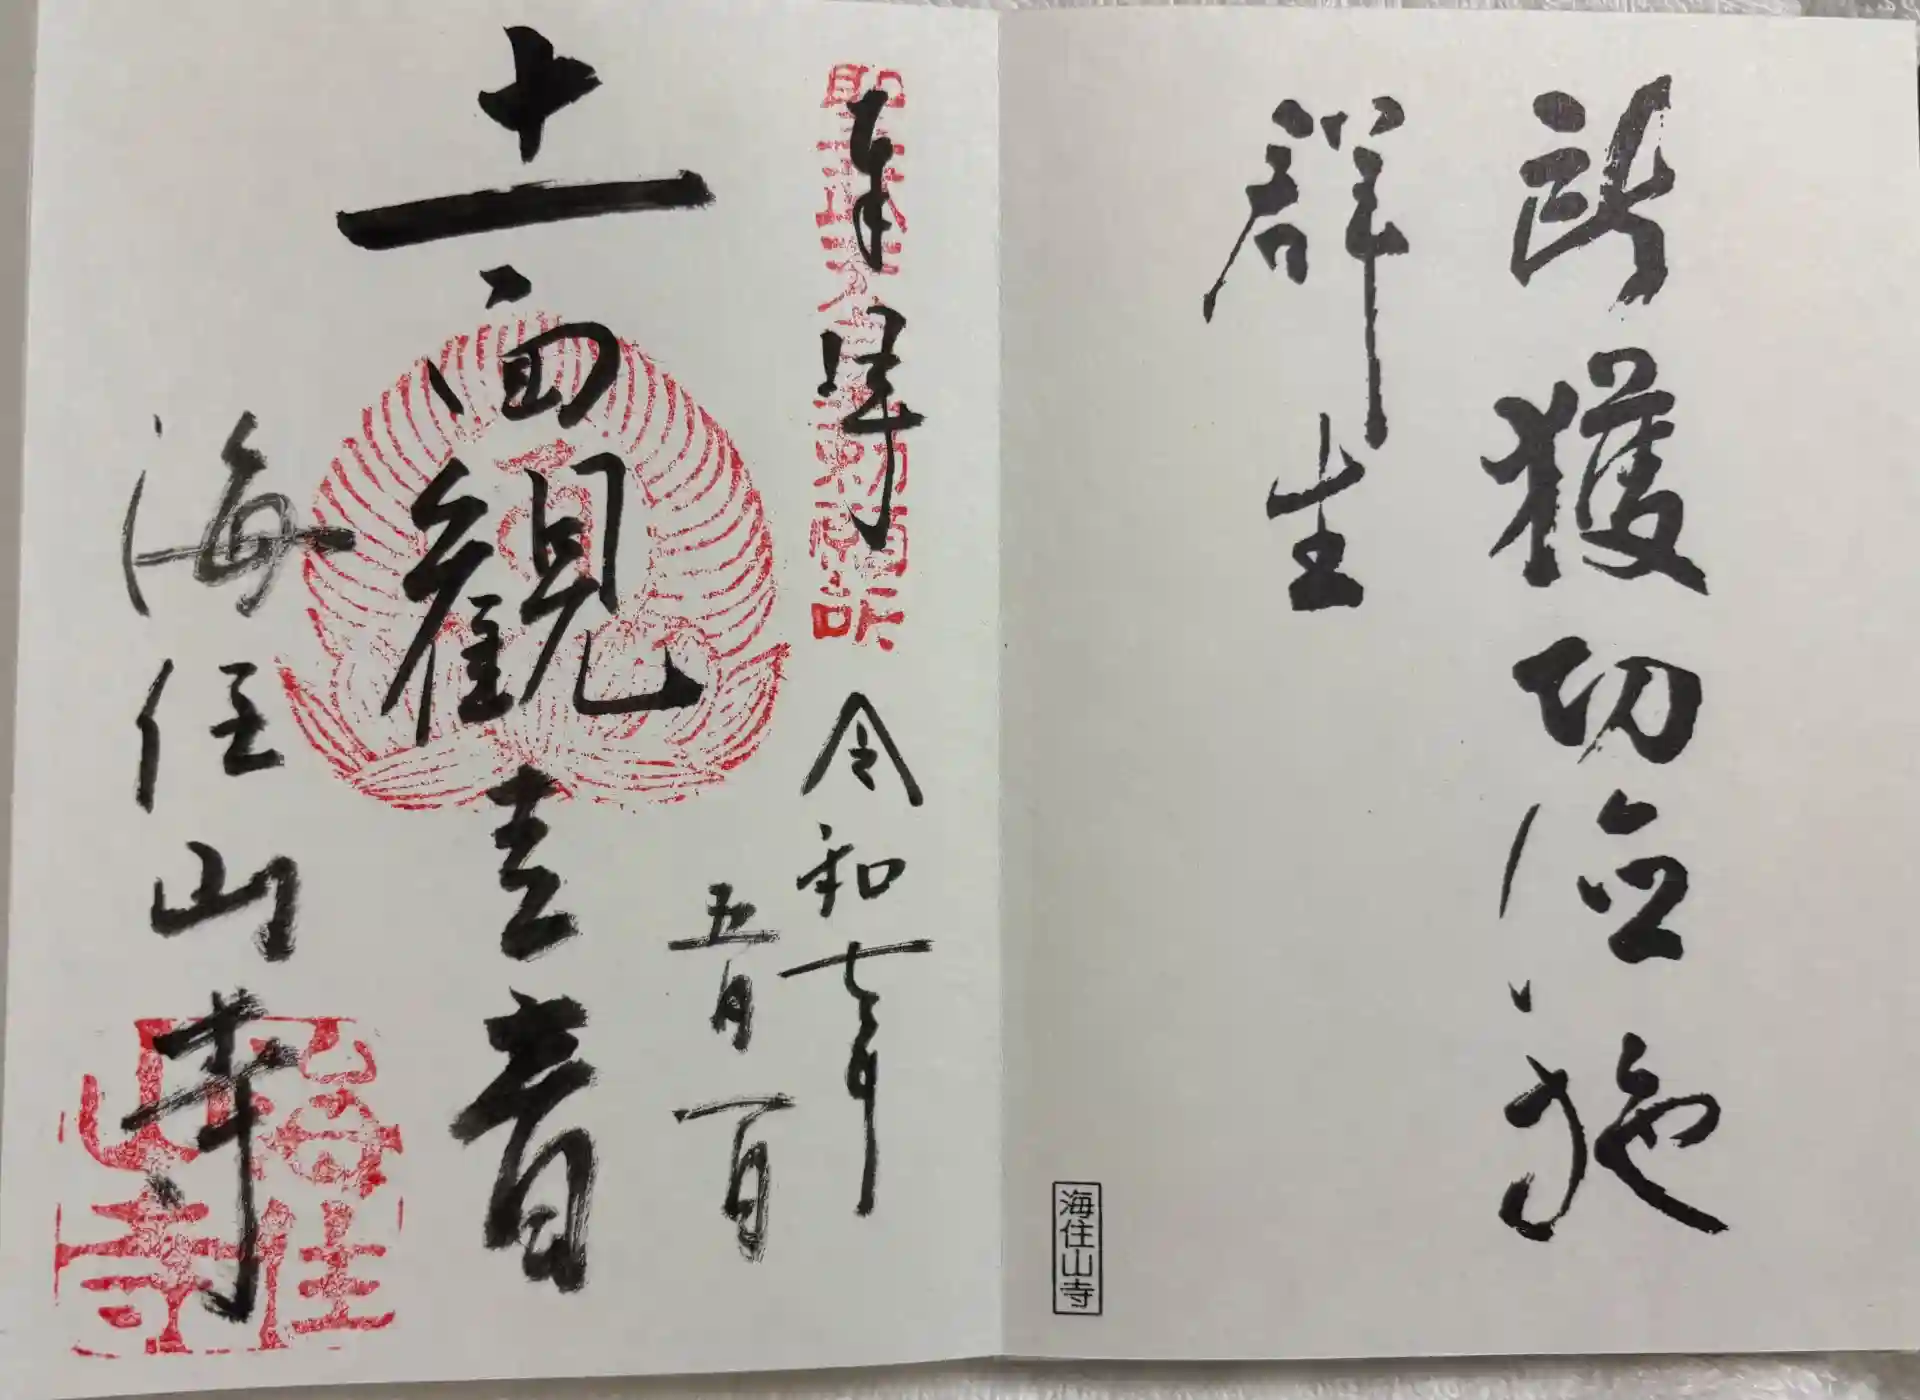 所獲功徳施
群生
海住山寺
奉拝
聖武天皇勅願所
令和七年
五月一日
十一面観世音
海住山寺
海住山寺